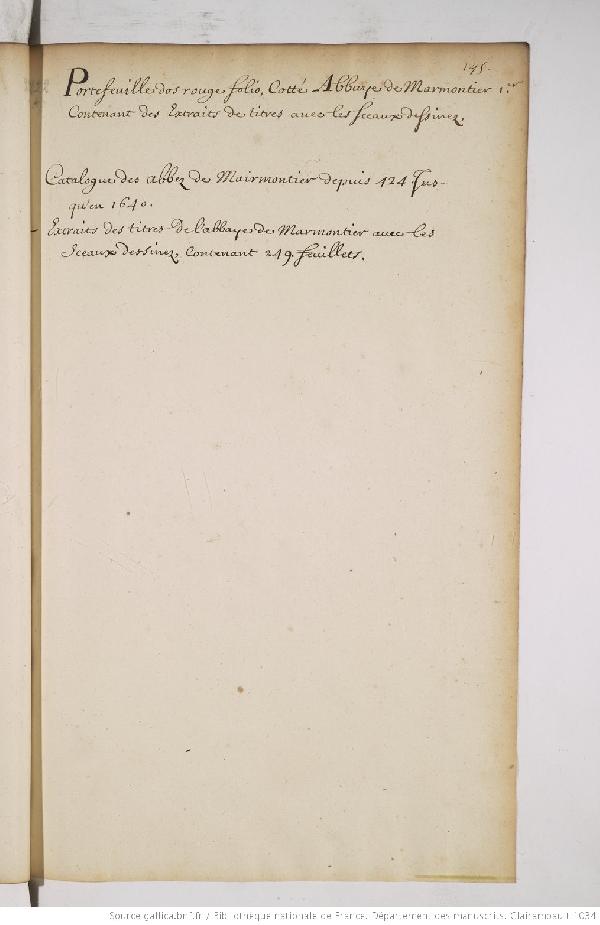 145.
Portefeuille dos rouge folio, Cotté Abbaye de Marmontier 1.er
Contenant des Extraits de titres avec les sceaux dessinez.
Catalogue des abbez de Mairmontier depuis 424 Jus-
qu'en 1640.
Extraits des titres de l'abbaye de Marmontier avec les
Sceaux dessinez, Contenant 249. feuillets.
Source gallica.bnf.fr / Bibliothèque nationale de France. Département des manuscrits. Clairambault 1034